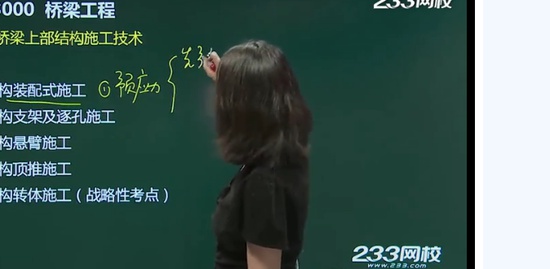 3000 桥梁工程
233网校
桥梁上部结构施工技术
先张
构装配式施工 ①预应力
构支架及逐孔施工
构悬臂施工
构顶推施工
构转体施工（战略性考点）
233网校
www.233.com